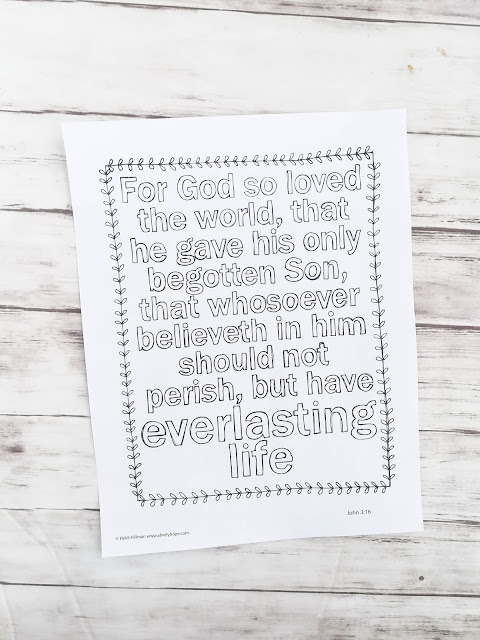 For God so loved
the world, that
he gave his only
begotten Son,
that whosoever
believeth in him
should not
perish, but have
everlasting
life
John 3:16
© Heidi Hillman www.alivelyhope.com